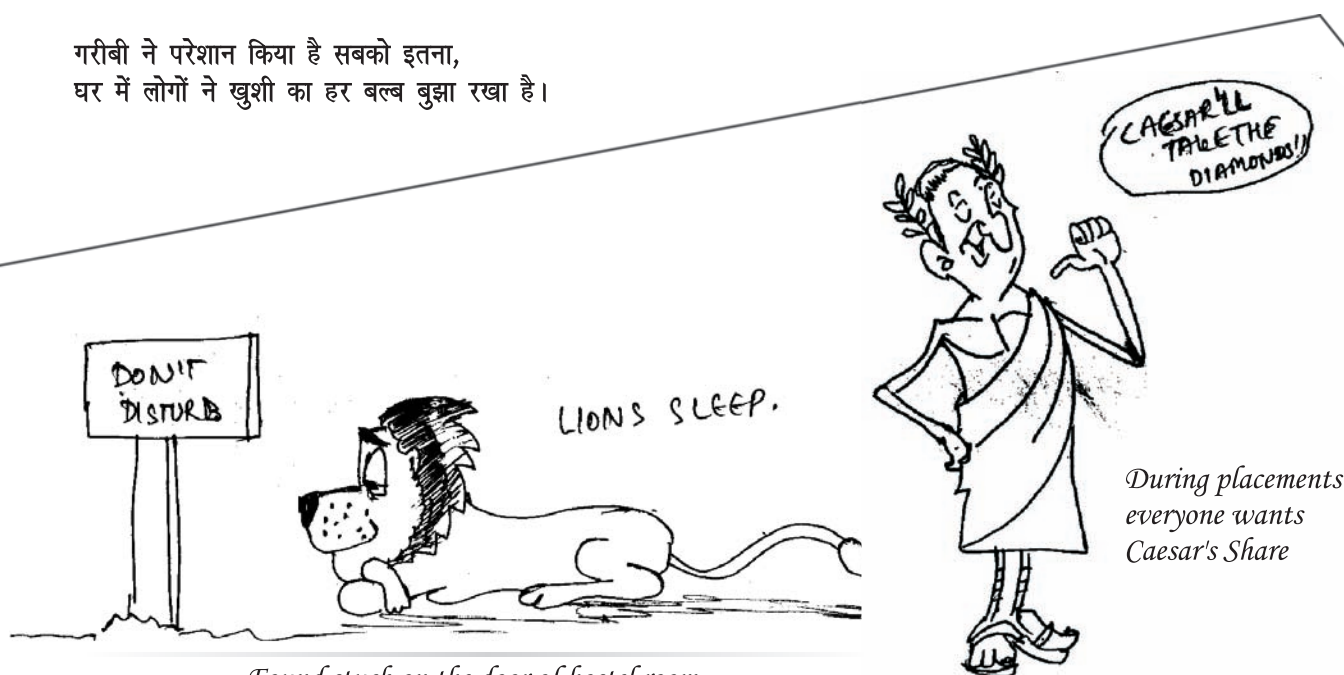 गरीबी ने परेशान किया है सबको इतना,
घर में लोगों ने खुशी का हर बल्ब बुझा रखा है।
CAESAR'LL
TAKE THE
DIAMONDS!!
DON'T
DISTURB
LIONS SLEEP.
During placements
everyone wants
Caesar's Share
Found stuck on the door of hostel room